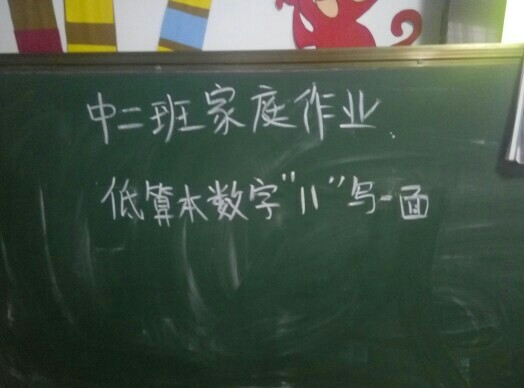 中二班家庭作业、
低算本数字"11"写一面